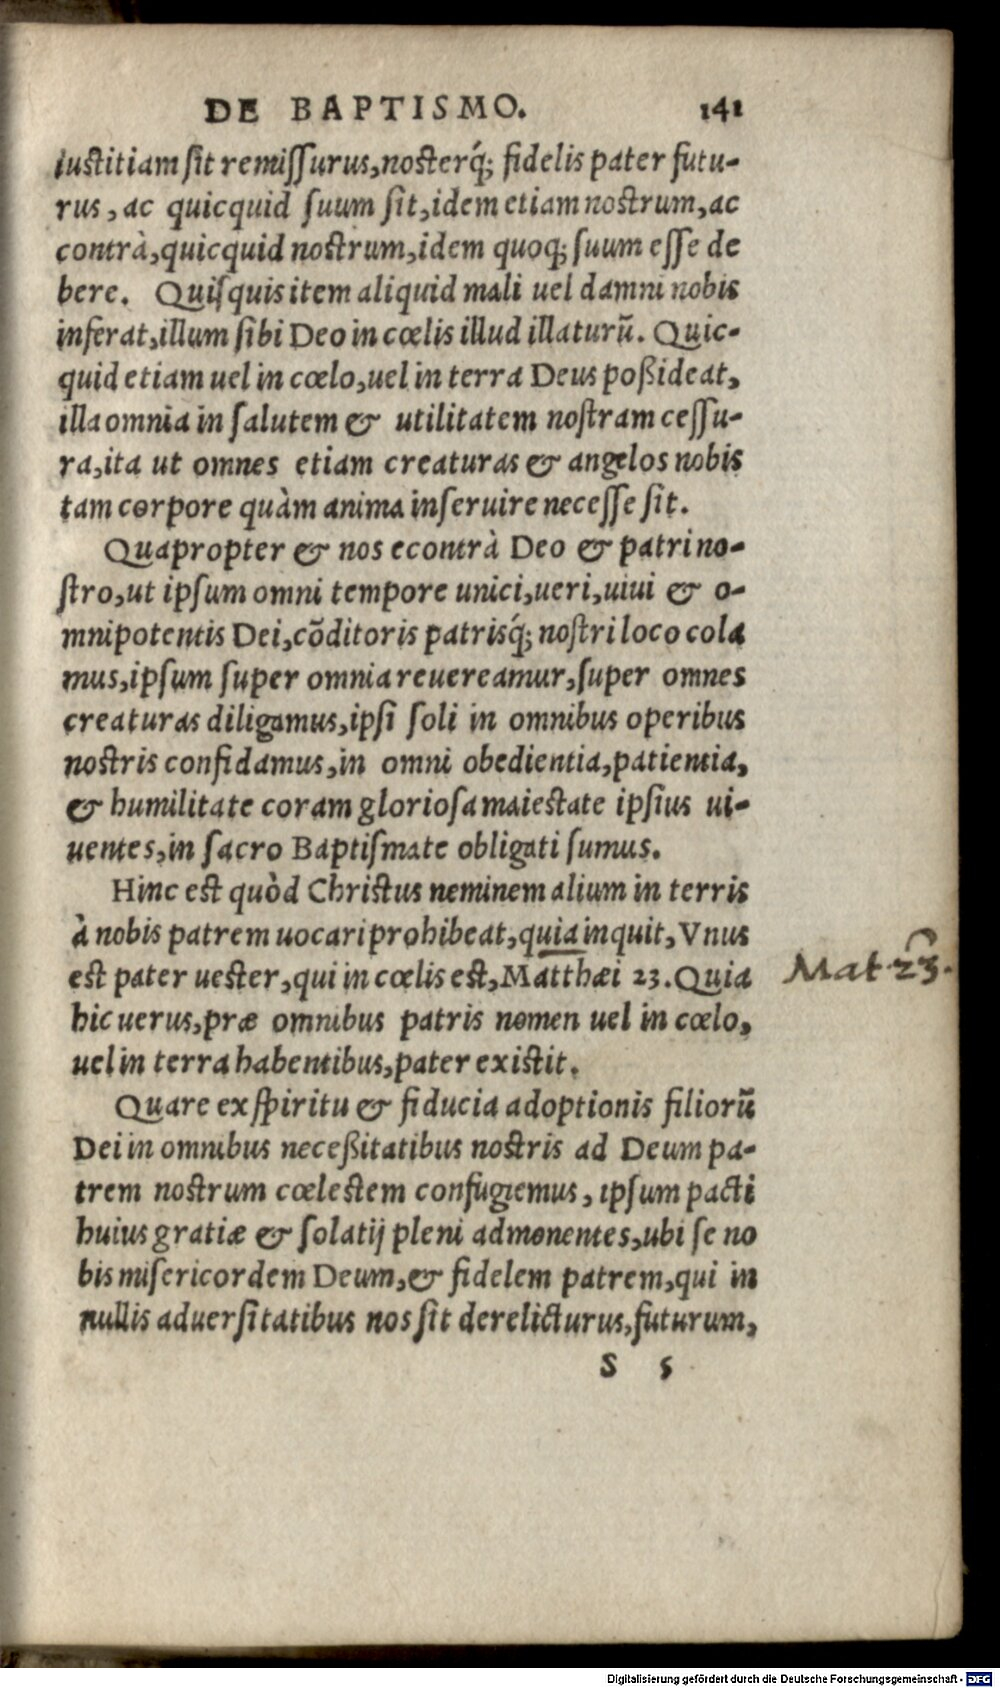 DE BAPTISMO. 141
iustitiam sit remissurus, nosterq́; fidelis pater futu-
rus, ac quicquid suum sit, idem etiam nostrum, ac
contrà, quicquid nostrum, idem quoq; suum esse de
bere. Quisquis item aliquid mali uel damni nobis
inferat, illum sibi Deo in cœlis illud illaturũ. Quic-
quid etiam uel in cœlo, uel in terra Deus poßideat,
illa omnia in salutem & utilitatem nostram cessu-
ra, ita ut omnes etiam creaturas & angelos nobis
tam corpore quàm anima inseruire necesse sit.
Quapropter & nos econtrà Deo & patri no-
stro, ut ipsum omni tempore unici, ueri, uiui & o-
mnipotentis Dei, cõditoris patrisq́; nostri loco cola
mus, ipsum super omnia reuereamur, super omnes
creaturas diligamus, ipsi soli in omnibus operibus
nostris confidamus, in omni obedientia, patientia,
& humilitate coram gloriosa maiestate ipsius ui-
uentes, in sacro Baptismate obligati sumus.
Hinc est quòd Christus neminem alium in terris
à nobis patrem uocari prohibeat, quia inquit, Vnus
est pater uester, qui in cœlis est, Matthæi 23. Quia
Mat. 23.
hic uerus, præ omnibus patris nomen uel in cœlo,
uel in terra habentibus, pater existit.
Quare ex spiritu & fiducia adoptionis filiorũ
Dei in omnibus neceßitatibus nostris ad Deum pa-
trem nostrum cœlestem confugiemus, ipsum pacti
huius gratiæ & solatij pleni admonentes, ubi se no
bis misericordem Deum, & fidelem patrem, qui in
nullis aduersitatibus nos sit derelicturus, futurum,
S 5
Digitalisierung gefördert durch die Deutsche Forschungsgemeinschaft - DFG